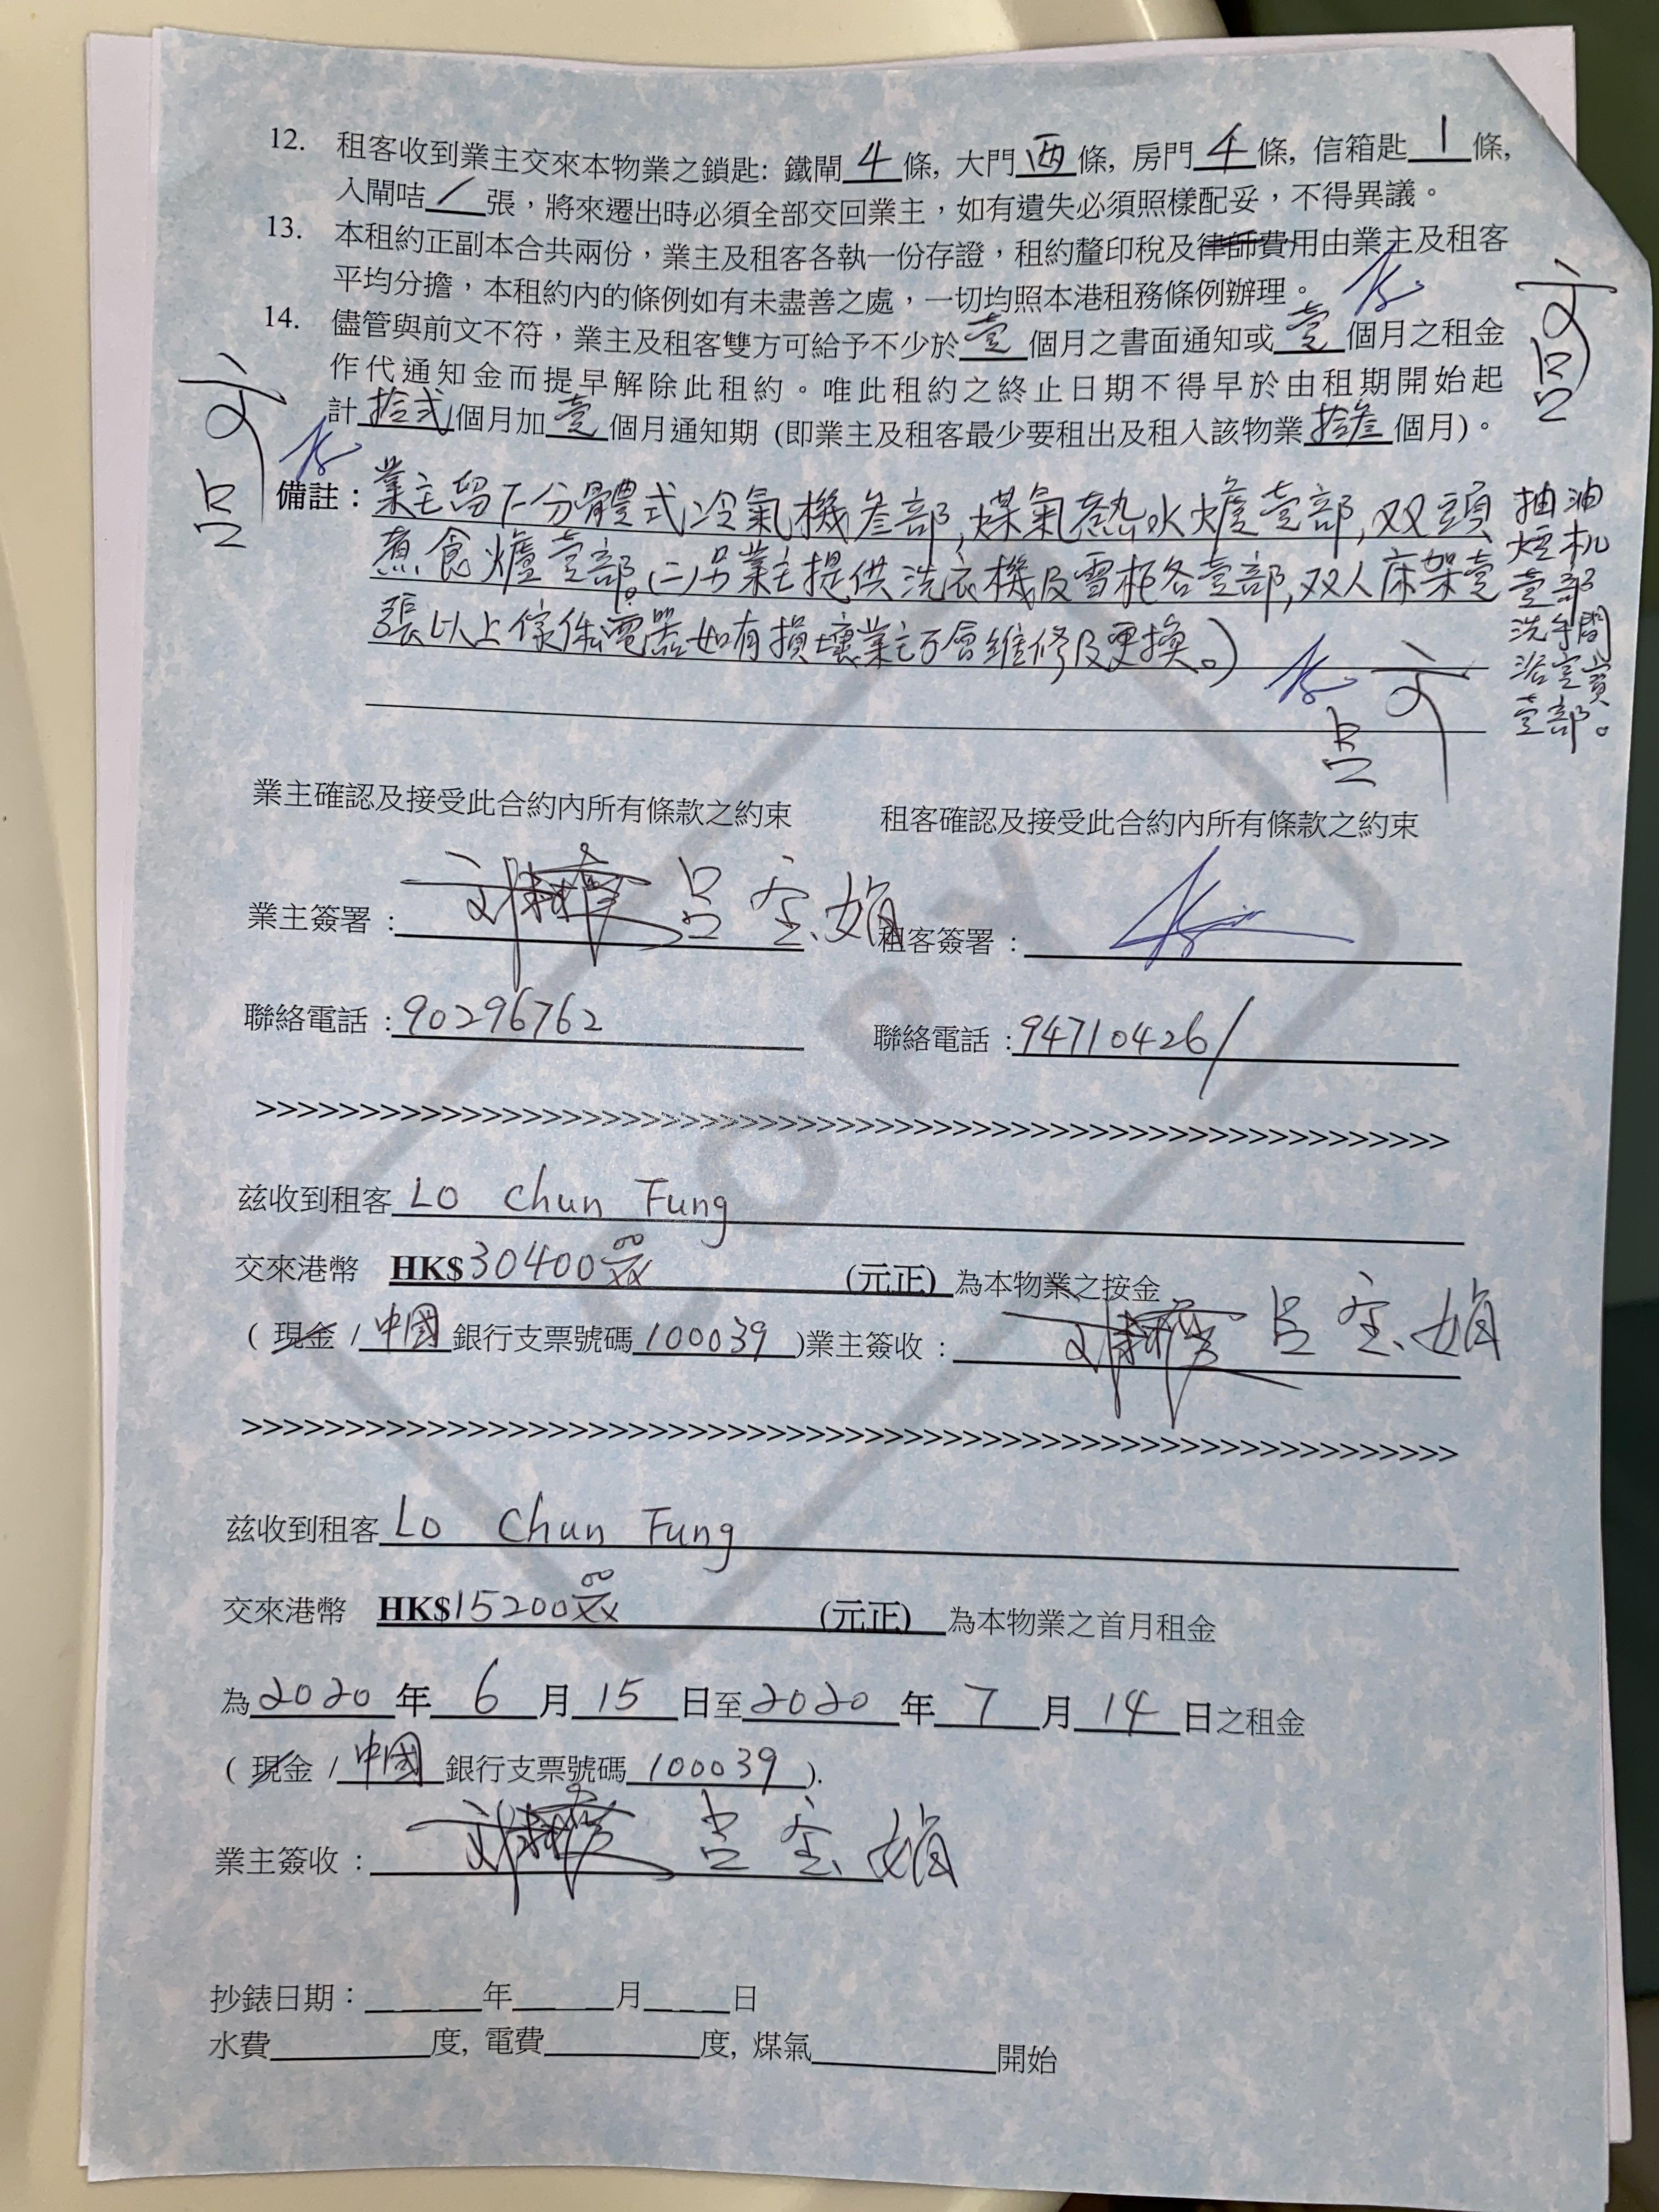 12. 租客收到業主交來本物業之鎖匙: 鐵閘 4 條, 大門 両 條, 房門 4 條, 信箱匙 1 條,
入閘咭 / 張，將來遷出時必須全部交回業主，如有遺失必須照樣配妥，不得異議。
13. 本租約正副本合共兩份，業主及租客各執一份存證，租約釐印稅及律師費用由業主及租客
平均分擔，本租約內的條例如有未盡善之處，一切均照本港租務條例辦理。
14. 儘管與前文不符，業主及租客雙方可給予不少於 壹 個月之書面通知或 壹 個月之租金
作代通知金而提早解除此租約。唯此租約之終止日期不得早於由租期開始起
計 拾弍 個月加 壹 個月通知期 (即業主及租客最少要租出及租入該物業 拾叁 個月)。
文
呂
文
呂
備註：業主留下分體式冷氣機叁部,煤氣熱水爐壹部,双頭
煮食爐壹部。(二)另業主提供洗衣機及雪柜各壹部,双人床架壹
張以上傢俬電器如有損壞業主不會維修及更換。)
抽油
煙机
壹部
洗手間
浴室寶
壹部。
文
呂
業主確認及接受此合約內所有條款之約束
租客確認及接受此合約內所有條款之約束
業主簽署 : 呂金娟
租客簽署 :
聯絡電話 : 90296762
聯絡電話 : 94710426/
COPY
>>>>>>>>>>>>>>>>>>>>>>>>>>>>>>>>>>>>>>>>>>>>>>>>>>>>>>>>>>>>
茲收到租客 Lo Chun Fung
交來港幣 HK$30400 00/xx (元正) 為本物業之按金
( 現金 / 中國 銀行支票號碼 100039 )業主簽收 : 呂金娟
>>>>>>>>>>>>>>>>>>>>>>>>>>>>>>>>>>>>>>>>>>>>>>>>>>>>>>>>>>>>
茲收到租客 Lo Chun Fung
交來港幣 HK$15200 00/xx (元正) 為本物業之首月租金
為 2020 年 6 月 15 日至 2020 年 7 月 14 日之租金
( 現金 / 中國 銀行支票號碼 100039 ).
業主簽收 : 呂金娟
抄錶日期：____年____月____日
水費____度, 電費____度, 煤氣____開始